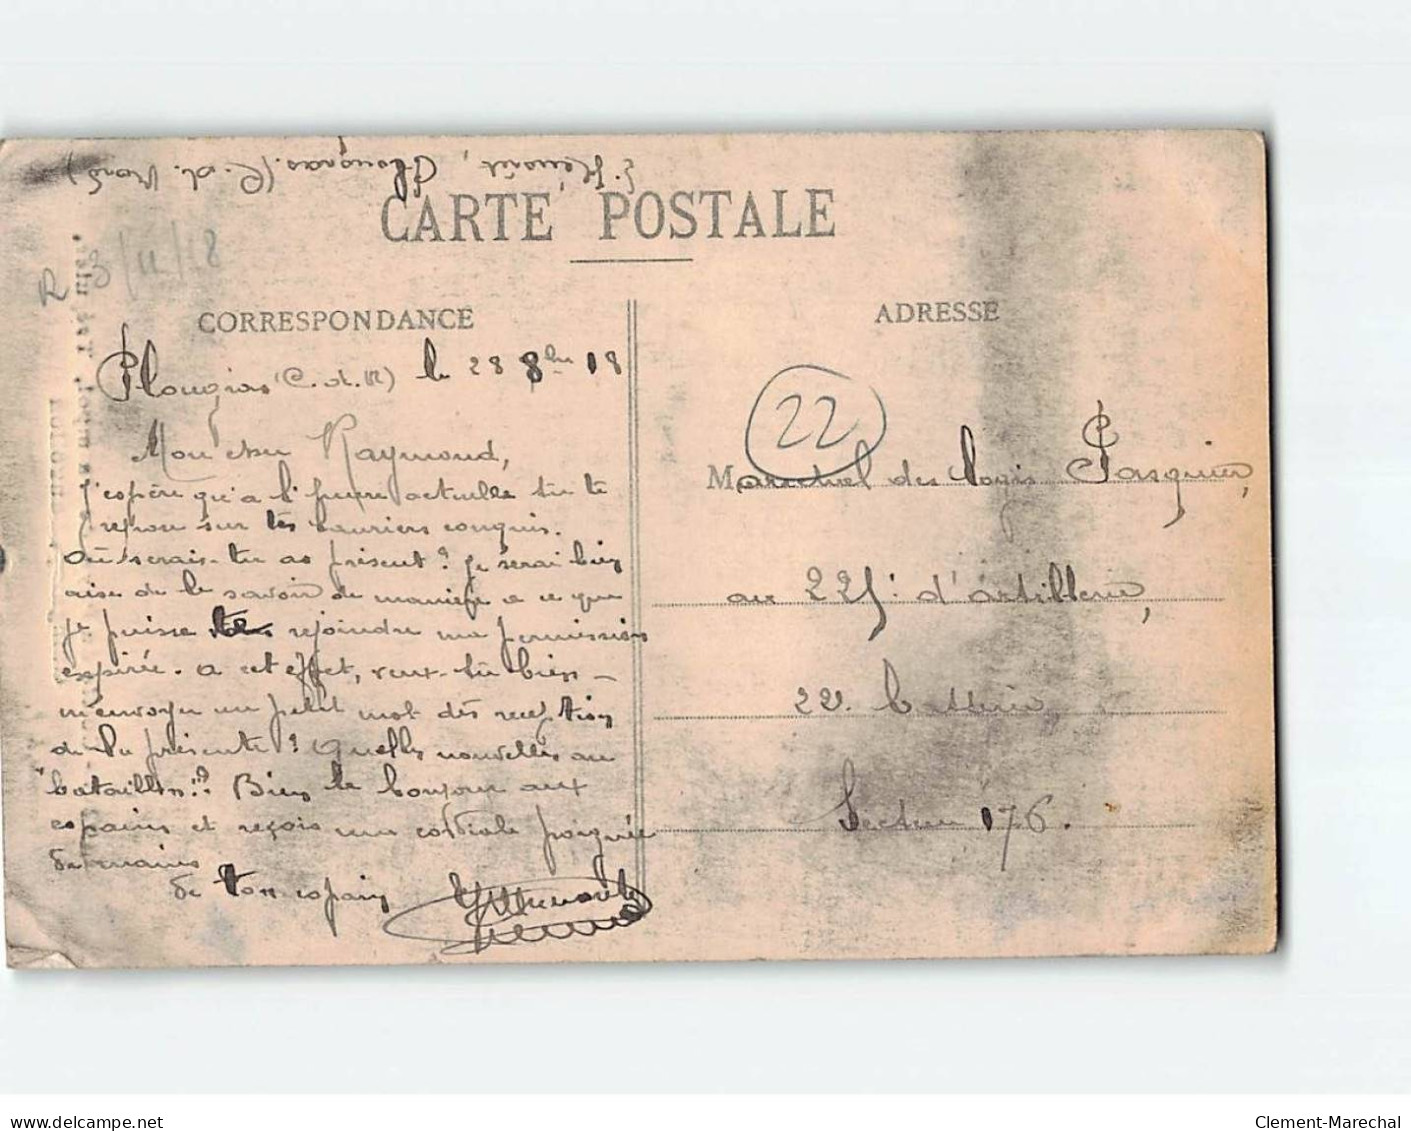 E. Hénorêt, Plougras (C. d. Nord)
CARTE POSTALE
R 3/11/18
CORRESPONDANCE
Plougras (C. d. N) le 28 8bre 18
Mon cher Raymond,
J'espère qu'a l'heure actuelle tu te
repose sur tes lauriers conquis.
Où serais-tu as présent? Je serai bien
aise de le savoir de manière a ce que
je puisse te rejoindre ma permission
expirée. a cet effet, veux-tu bien
m'envoyer un petit mot dès réception
de la présente? Quelles nouvelles au
"batailles"? Bien le bonjour aux
copains et reçois une cordiale poignée
de mains
de ton copain
ADRESSE
22
Maréchal des logis Pasquier,
au 225e d'artillerie,
22e batterie,
Secteur 176.
www.delcampe.net
Clement-Marechal